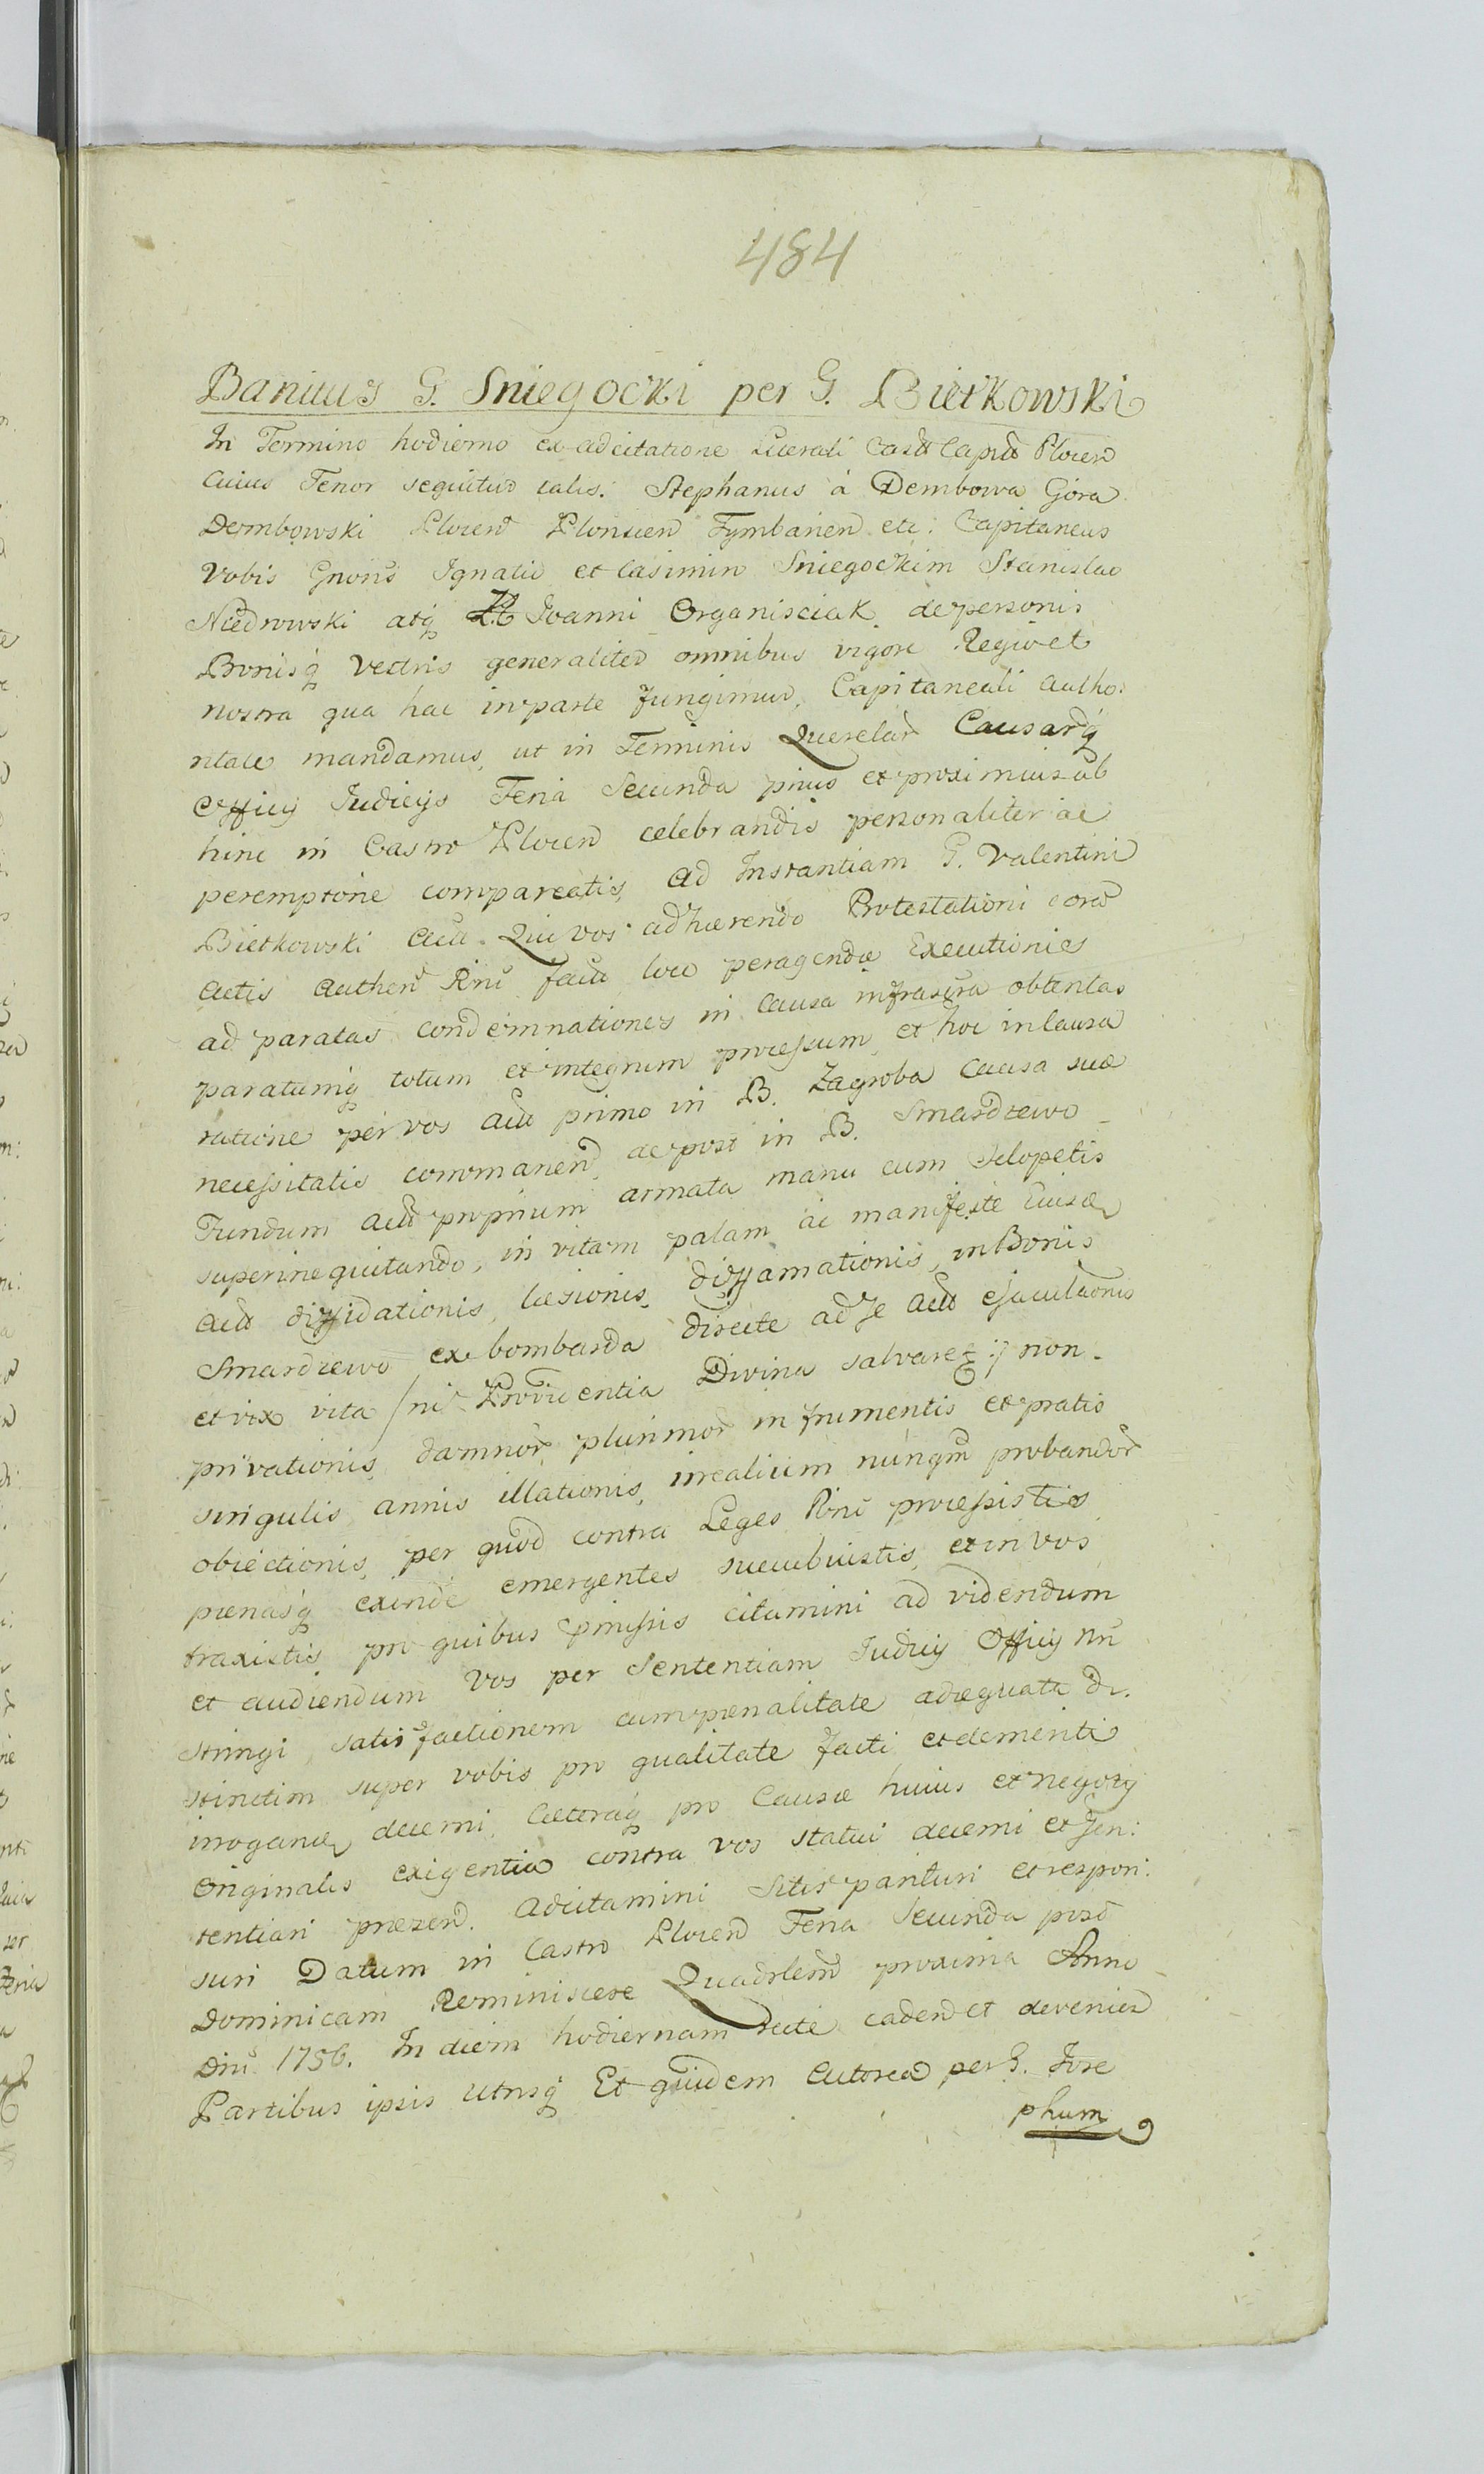 484
Banitus G. Sniegocki per G. Bietkowski
In Termino hodierno ex adcitatione Literali Castr Capit Plocen
Cuius Tenor sequitur talis. Stephanus à Dembowa Góra
Dembowski Plocen Plonscen Tymbarien etc. Capitaneus
Vobis Gnoris Ignatio et Casimiro Sniegockim Stanislao
atq Joanni Organisciak de personis
Bonisq Vestris generaliter omnibus vigore Regio et
nostra qua hac in parte fungimur, Capitaneali autho:
ritate mandamus, ut in Terminis Querelar Causarq
Officij Judicijs Feria Secunda prius et proximius ab
hinc in Castro Plocen celebrandis personaliter ac
peremptorie compareatis, ad Instantiam G. Valentini
Bietkowski Act. Qui vos adhærendo Protestationi cora
Actis Authen Rni factæ loco peragendæ Executionis
ad paratas condemnationes in causa infrascra obtentas
paratumq totum et integrum processum, et hoc in causa
ratione per vos primo in B. Zagroba causa suæ
necessitatis commanen, ac post in B. Smardzewo
Fundum proprium armata manu cum Sclopetis
superinequitando, in vitam palam ac manifeste
diffidationis, læsionis, diffamationis, in Bonis
Smardzewo ex bombarda directe ad se ejaculaonis
et vix vita /ni Providentia Divina salvaret:/ non
privationis, damnor plurimor in frumentis et pratis
singulis annis illationis, irrealium nunqm probandor
obiectionis, per quod contra Leges Rni processistis
pænasq exinde emergentes succubuistis, et in vos
traxistis, pro quibus præmissis citamini ad videndum
et audiendum Vos per Sententiam Judicij Officij nri
stringi, satisfactionem cum pœnalitate adæquata di:
stinctim super vobis pro qualitate facti et demeriti
irroganda decerni, Cæteraq pro Causæ huius et negotij
Originalis exigentia contra vos statui decerni et Sen:
tentiari præsen. Adcitamini Sitis parituri et respon:
suri Datum in Castro Plocen Feria Secunda post
Dominicam Reminiscere Quadrlem proxima Anno
Dni 1756. In diem hodiernam recte caden et devenien
Partibus ipsis utrisq Et quidem Actorea per G. Jose
phum